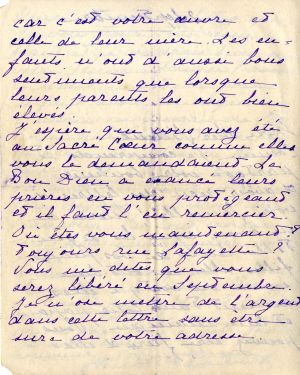 car c'est votre œuvre et
celle de leur mère. Les en-
fants n'ont d'aussi bons
sentiments que lorsque
leurs parents les ont bien
élevés.
J'espère que vous avez été
au Sacré Cœur comme elles
vous le demandaient. Le
Bon Dieu a exaucé leurs
prières en vous protégeant
et il faut l'en remercier.
Où êtes vous maintenant ?
toujours rue Lafayette ?
Vous me dites que vous
serez libéré en Septembre.
Je n'ose mettre de l'argent
dans cette lettre sans être
sure de votre adresse.